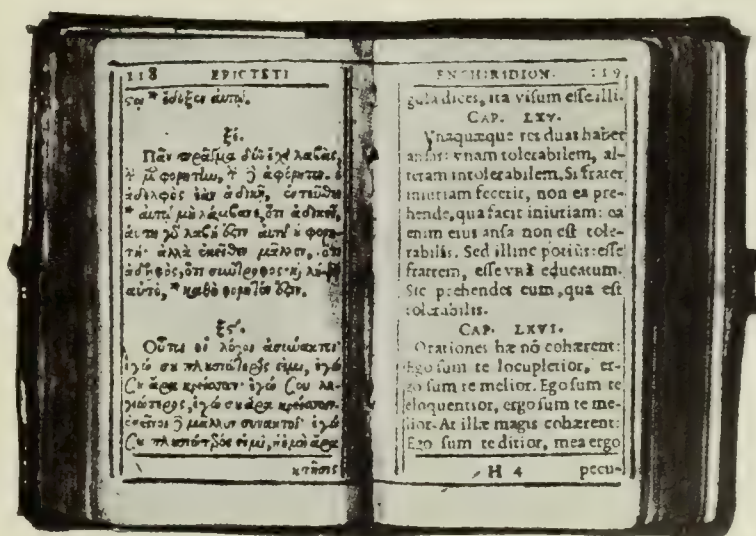 118 EPICTETI
ται * ἔδοξεν αὐτῷ.
ξέ.
Πᾶν πρᾶγμα δύο ἔχει λαβὰς,
τ̀ μ̀ φορητὴν, τ̀ ἢ ἀφόρητον. ὁ
ἀδελφὸς ἐὰν ἀδικῇ, ἐντεῦθεν
* αὐτὸ μὴ λάμβανε, ὅτι ἀδικεῖ,
αὕτη γὸ λαβή ὅξιν αὐτῷ ὐ φορη-
τή· ἀλλὰ ἐκεῖθεν μᾶλλον, ὅτι
ἀδελφὸς, ὅτι σύντροφος· καὶ λήψῃ
αὐτὸ, * καθὸ φορητόν ὅξιν.
ξς΄.
Οὗτοι οἱ λόγοι ἀσύνακτοι·
ἐγώ σου πλουσιώτερός εἰμι, ἐγώ
σου ἄρα κρείσσων· ἐγώ σου λο-
γιώτερος, ἐγώ σου ἄρα κρείσσων.
ἐκεῖνοι ἢ μᾶλλον συνακτοί· ἐγώ
σου πλουσιώτερός εἰμι, ἡ ἐμὴ ἄρα
κτῆσις
ENCHIRIDION. 119
gula dices, ita visum esse illi.
CAP. LXV.
Vnaquæque res duas habet
ansas: vnam tolerabilem, al-
teram intolerabilem. Si frater
iniuriam fecerit, non ea pre-
hende, qua facit iniuriam: ea
enim eius ansa non est tole-
rabilis. Sed illinc potiùs: esse
fratrem, esse vnà educatum.
Sic prehendes eum, qua est
tolerabilis.
CAP. LXVI.
Orationes hæ nõ cohærent:
Ego sum te locupletior, er-
go sum te melior. Ego sum te
eloquentior, ergo sum te me-
lior. At illæ magis cohærent:
Ego sum te ditior, mea ergo
H 4 pecu-